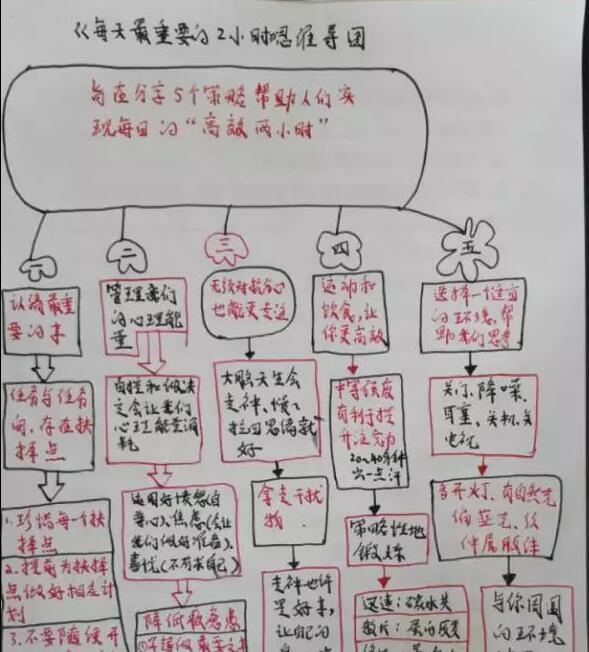 《每天最重要的2小时思维导图
旨在分享5个策略帮助人们实
现每日的“高效两小时”
一
二
三
四
五
认清最重
要的事
任务与任务
间,存在抉
择点
1.珍惜每一个抉
择点
2.提前为抉择
点做好相应计
划
3.不要随便开
管理我们
的心理能
量
自控和做决
定会让我们
心理能量消
耗
运用好愤怒(自
尊心)、焦虑(会让
我们做好准备)、
喜忧(不苛求自己)
降低疲惫感
无须对抗分心
也能更专注
大脑天生会
走神,慢慢
拉回思绪就
好
拿走干扰
物
走神也许
是好事,
让自己的
运动和
饮食,让
你更高效
中等强度
有利于提
升注意力
20~40分钟
出一点汗
策略性地
锻炼
迅速:碳水类
较长:蛋白质类
选择一个适宜
的环境,帮
助我们思考
关门、降噪、
耳塞、关机、关
电视
多开灯、有自然光
偏蓝光、伸
与你周围
的环境